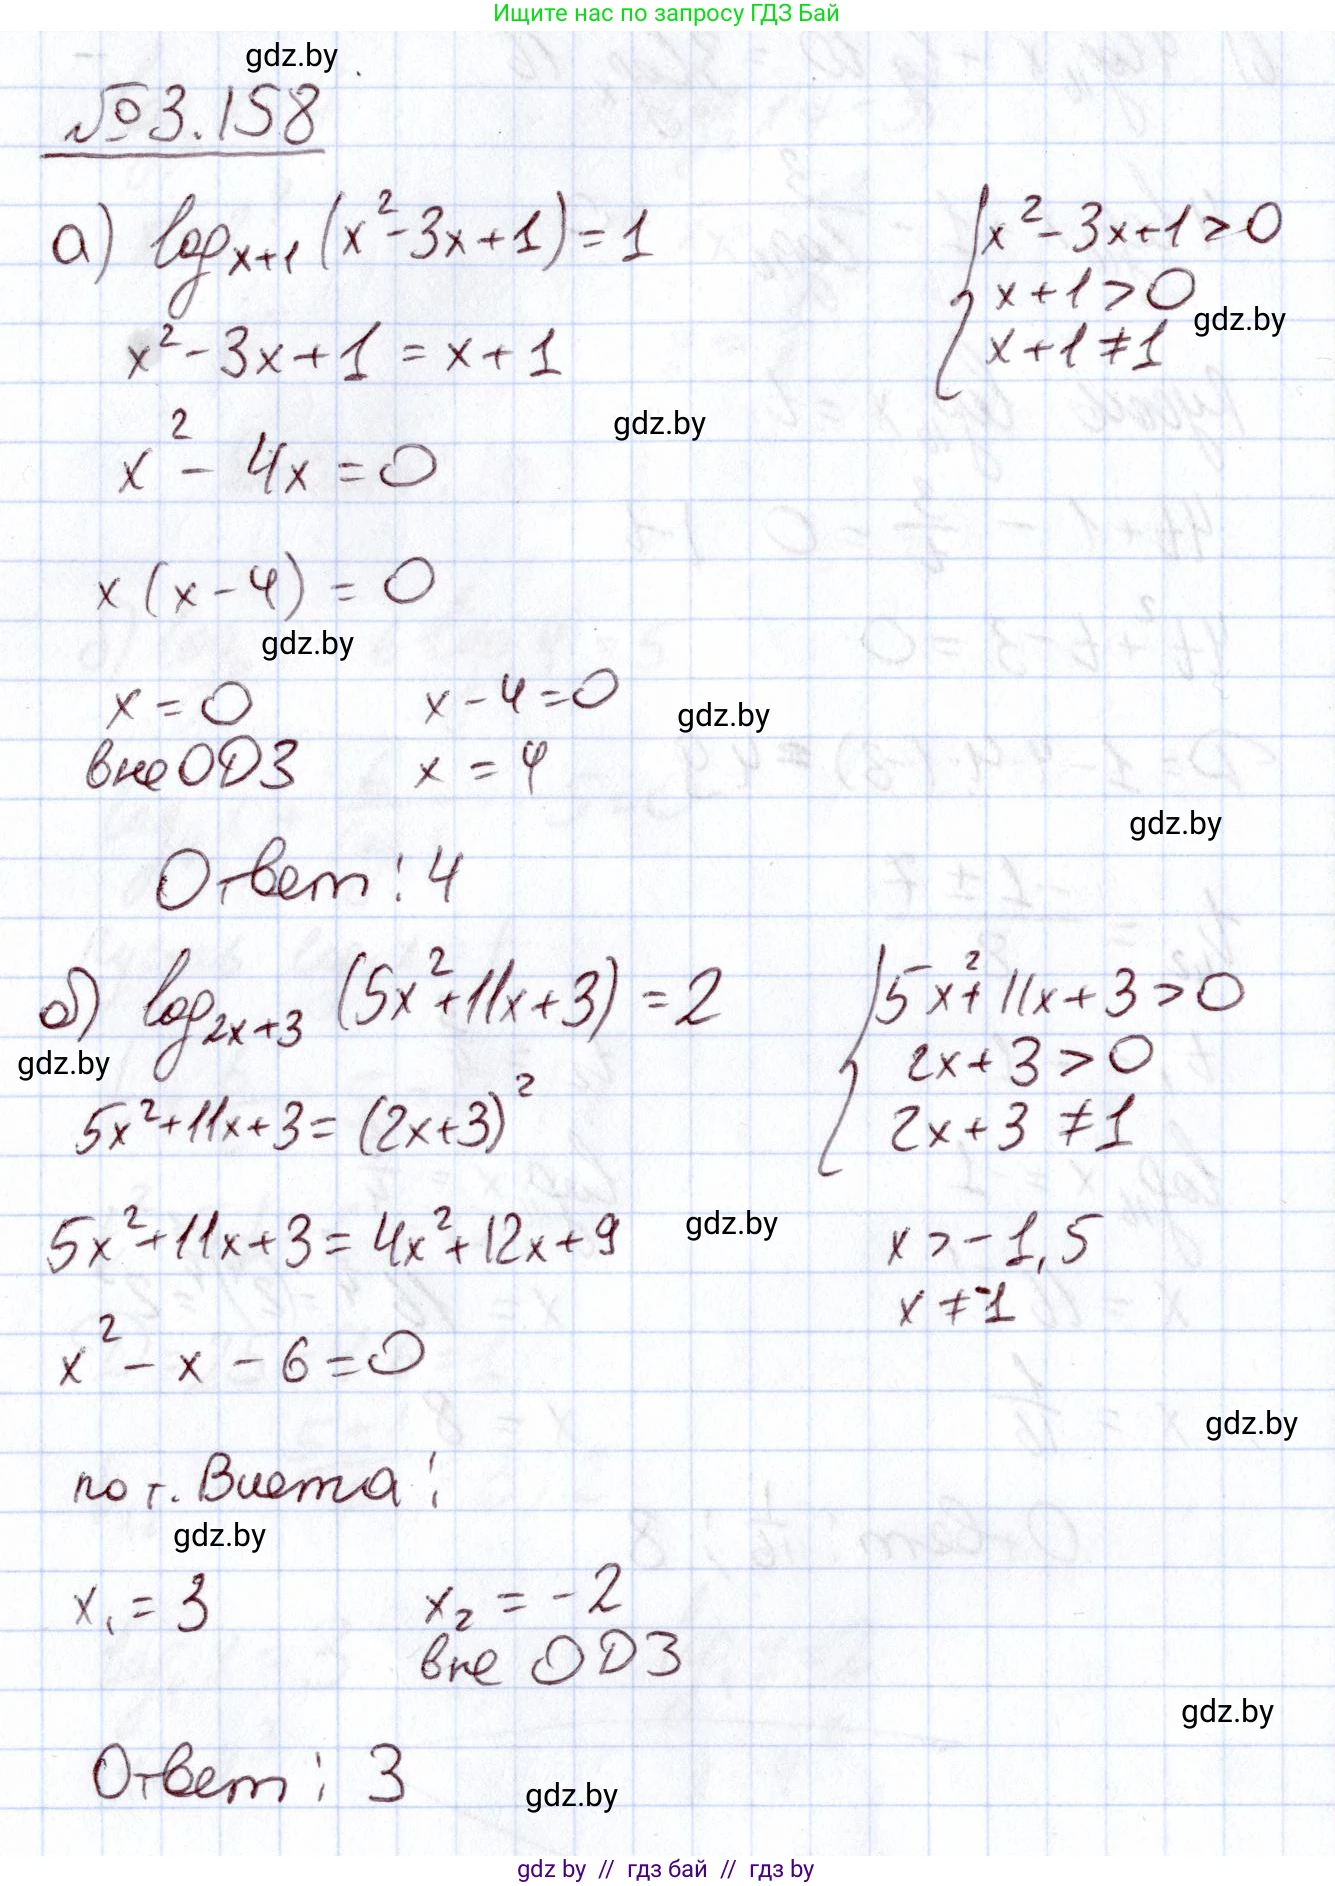 Ищите нас по запросу ГДЗ Бай
gdz.by
№3.158
а) log_{x+1} (x² - 3x + 1) = 1
{ x² - 3x + 1 > 0
x + 1 > 0
x + 1 ≠ 1
gdz.by
x² - 3x + 1 = x + 1
gdz.by
x² - 4x = 0
x (x - 4) = 0
gdz.by
x = 0    x - 4 = 0
gdz.by
вне ОДЗ    x = 4
gdz.by
Ответ: 4
б) log_{2x+3} (5x² + 11x + 3) = 2
{ 5x² + 11x + 3 > 0
2x + 3 > 0
2x + 3 ≠ 1
gdz.by
5x² + 11x + 3 = (2x + 3)²
5x² + 11x + 3 = 4x² + 12x + 9
gdz.by
x > -1,5
x ≠ -1
x² - x - 6 = 0
gdz.by
по т. Виета:
gdz.by
x₁ = 3    x₂ = -2
вне ОДЗ
gdz.by
Ответ: 3
gdz.by
gdz by // гдз бай // гдз by